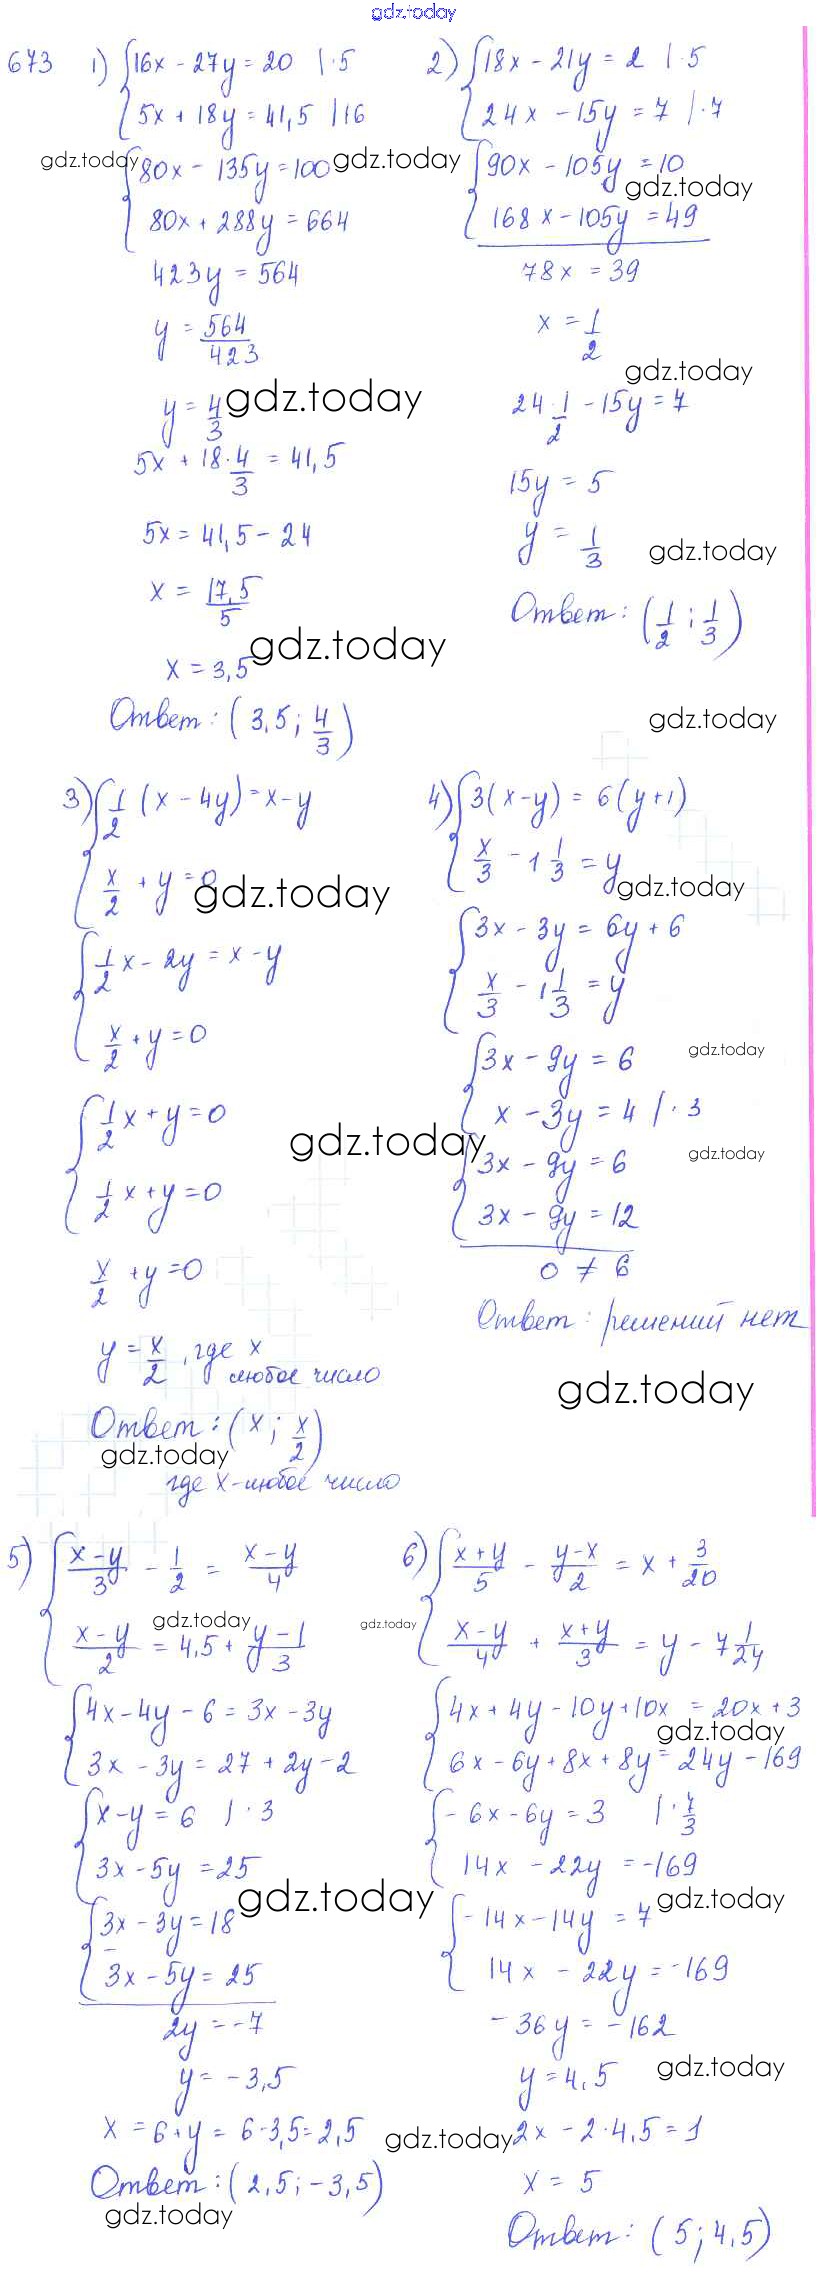 gdz.today
673 1) {16x - 27y = 20 | ·5
5x + 18y = 41,5 | 16
gdz.today
{80x - 135y = 100
gdz.today
80x + 288y = 664
423y = 564
y = 564/423
y = 4/3
gdz.today
5x + 18·4/3 = 41,5
5x = 41,5 - 24
x = 17,5/5
gdz.today
x = 3,5
Ответ: (3,5; 4/3)
2) {18x - 21y = 2 | ·5
24x - 15y = 7 | ·7
{90x - 105y = 10
gdz.today
168x - 105y = 49
78x = 39
x = 1/2
gdz.today
24·1/2 - 15y = 7
15y = 5
y = 1/3
gdz.today
Ответ: (1/2; 1/3)
gdz.today
3) {1/2 (x - 4y) = x - y
x/2 + y = 0
gdz.today
{1/2x - 2y = x - y
x/2 + y = 0
{1/2x + y = 0
gdz.today
1/2x + y = 0
x/2 + y = 0
y = x/2, где x
любое число
Ответ: (x; x/2)
gdz.today
где x - любое число
4) {3(x-y) = 6(y+1)
x/3 - 1 1/3 = y
gdz.today
{3x - 3y = 6y + 6
x/3 - 1 1/3 = y
{3x - 9y = 6
gdz.today
x - 3y = 4 | ·3
{3x - 9y = 6
gdz.today
3x - 9y = 12
0 ≠ 6
Ответ: решений нет
gdz.today
5) {(x-y)/3 - 1/2 = (x-y)/4
gdz.today
(x-y)/2 = 4,5 + (y-1)/3
{4x - 4y - 6 = 3x - 3y
3x - 3y = 27 + 2y - 2
{x - y = 6 | ·3
3x - 5y = 25
gdz.today
{3x - 3y = 18
- 3x - 5y = 25
2y = -7
y = -3,5
x = 6 + y = 6 - 3,5 = 2,5
gdz.today
Ответ: (2,5; -3,5)
gdz.today
6) {(x+y)/5 - (y-x)/2 = x + 3/20
gdz.today
(x-y)/4 + (x+y)/3 = y - 7 1/24
{4x + 4y - 10y + 10x = 20x + 3
gdz.today
6x - 6y + 8x + 8y = 24y - 169
{-6x - 6y = 3 | ·7/3
14x - 22y = -169
gdz.today
{-14x - 14y = 7
14x - 22y = -169
-36y = -162
y = 4,5
gdz.today
2x - 2·4,5 = 1
x = 5
Ответ: (5; 4,5)